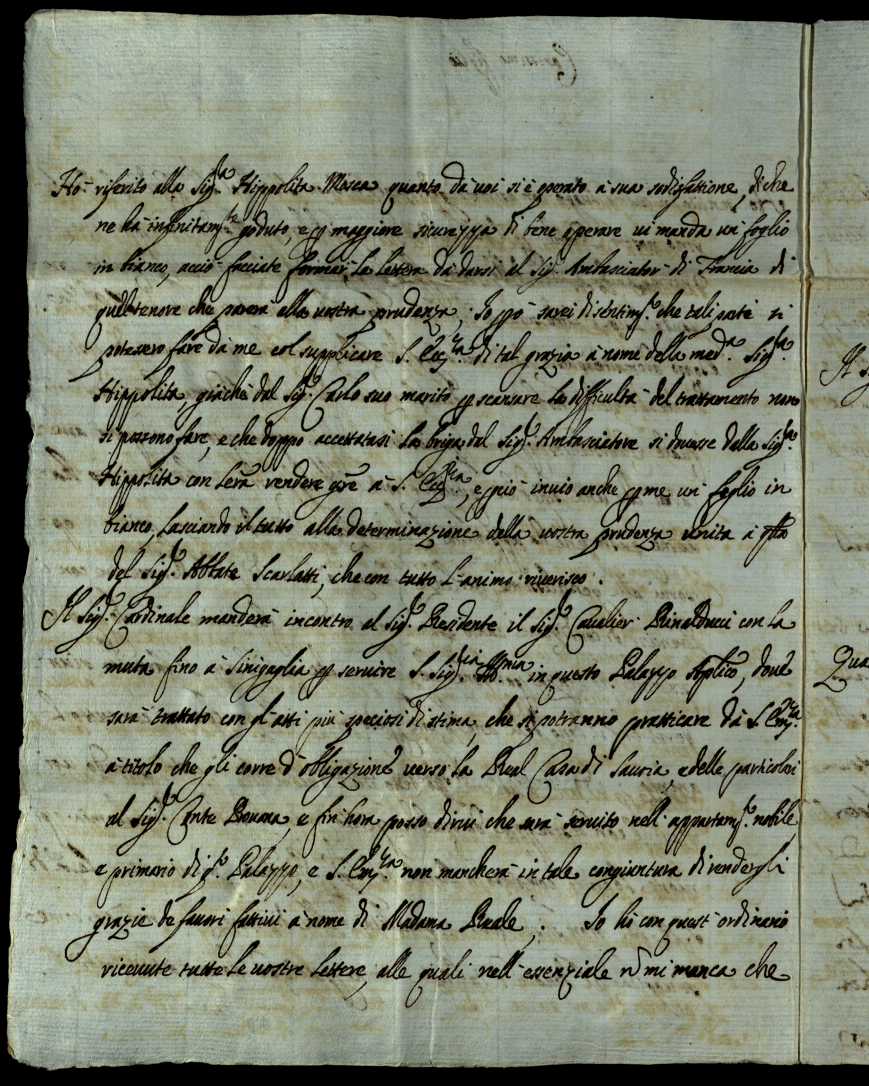 Ho riferito alla Sig.ra Hippolita Mosca quanto da voi si è operato à sua sodisfattione, di che
ne hà infinitam.te goduto, e p maggiore sicurezza di bene operare vi manda un foglio
in bianco, acciò facciate formar la lettera da darsi al Sig.r Ambasciator di Francia di
quel tenore che parerà alla vostra prudenza, Io però sarei di sentim.to che tali parti si
potessero fare da me col supplicare S. Ecc.za di tal grazia à nome della med.a Sig.ra
Hippolita, giàche dal Sig.r Carlo suo marito p scansare la difficultà del trattamento non
si possono fare, e che doppo accettatasi la briga dal Sig.r Ambasciatore si dovesse dalla Sig.ra
Hippolita con lẽra rendere gr̃e à S. Ecc.za, e pciò invio anche p me un foglio in
bianco, lasciando il tutto alla determinazione della vostra prudenza unita à
del Sig.r Abbate Scarlatti, che con tutto l'animo riverisco.
Il Sig.r Cardinale manderà incontro al Sig.r Residente il Sig.r Cavalier Rinalducci con la
muta fino à Sinigaglia p servire S. Sig.ria Ill.ma in questo Palazzo Aplico, dove
sarà trattato con gl'atti più speciosi di stima, che si potranno pratticare da S. Em.za
à titolo che gli corre d'obligazione verso la Real Casa di Savoia, e delle particolari
al Sig.r Conte, e fin hora posso dirvi che sarà servito nell'appartam.to nobile
e primario di q.to Palazzo, e S. Em.za non mancherà in tale congiuntura di rendergli
grazie de favori fattivi à nome di Madama Reale. Io hò con quest'ordinario
ricevute tutte le vostre lettere, alle quali nell'essenziale nõ mi manca che